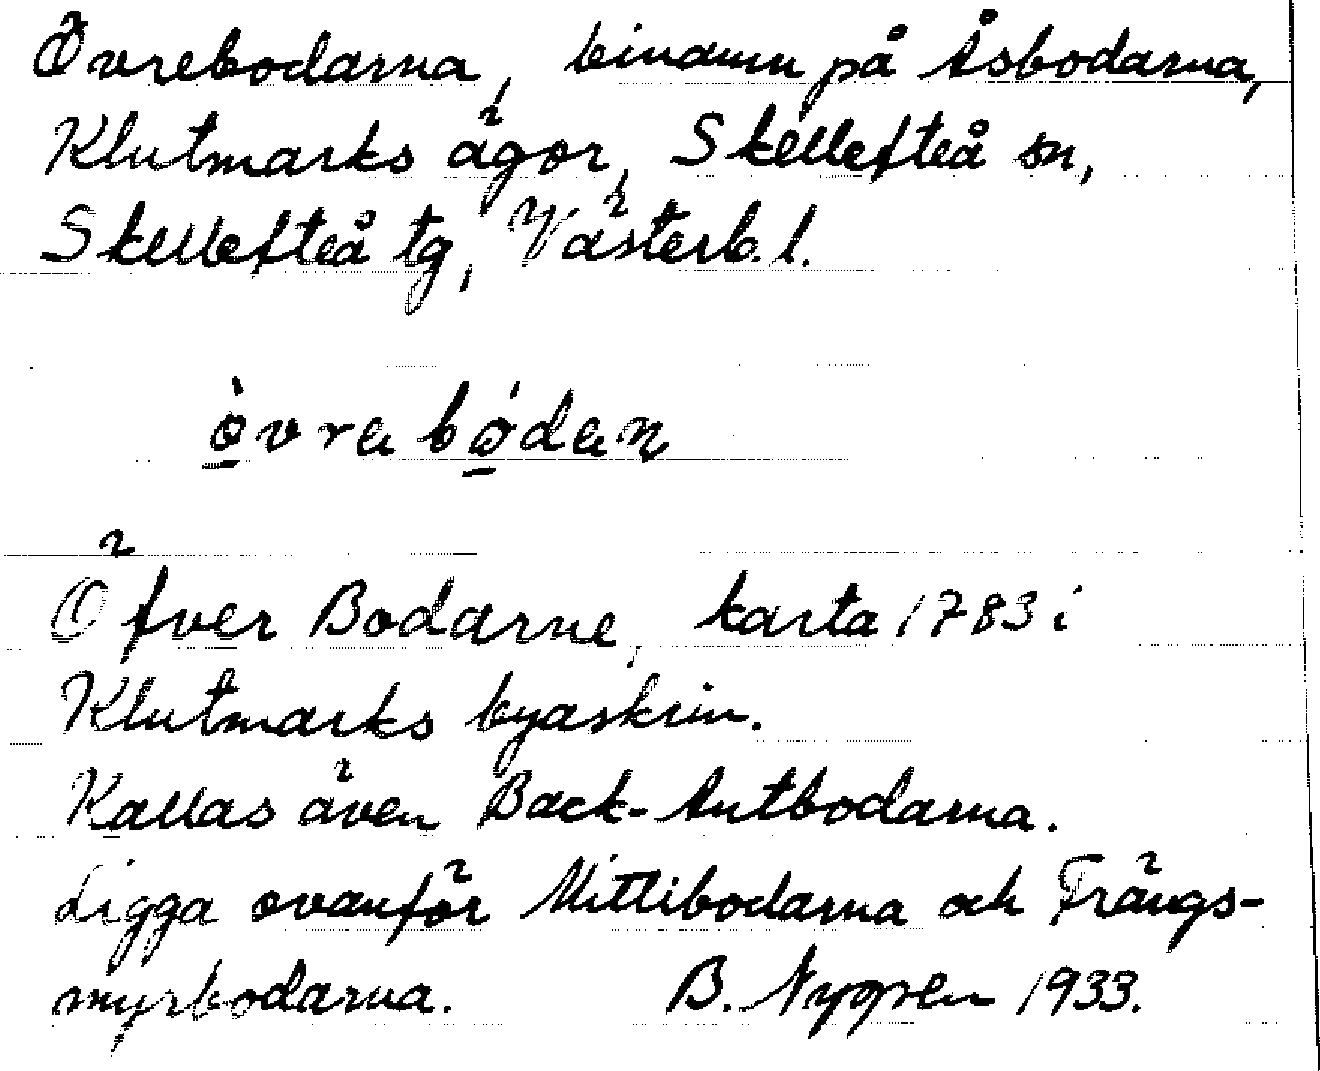 Övrebodarna, binamn på Åsbodarna,
Klutmarks ägor, Skellefteå sn,
Skellefteå tg, Västerb. l.
ò̱vrebó̱den
Öfver Bodarne, karta 1783 i
Klutmarks byaskrin.
Kallas även Back-Antbodarna.
Ligga ovanför Mittibodarna och Trångs-
myrbodarna. B. Nygren 1933.